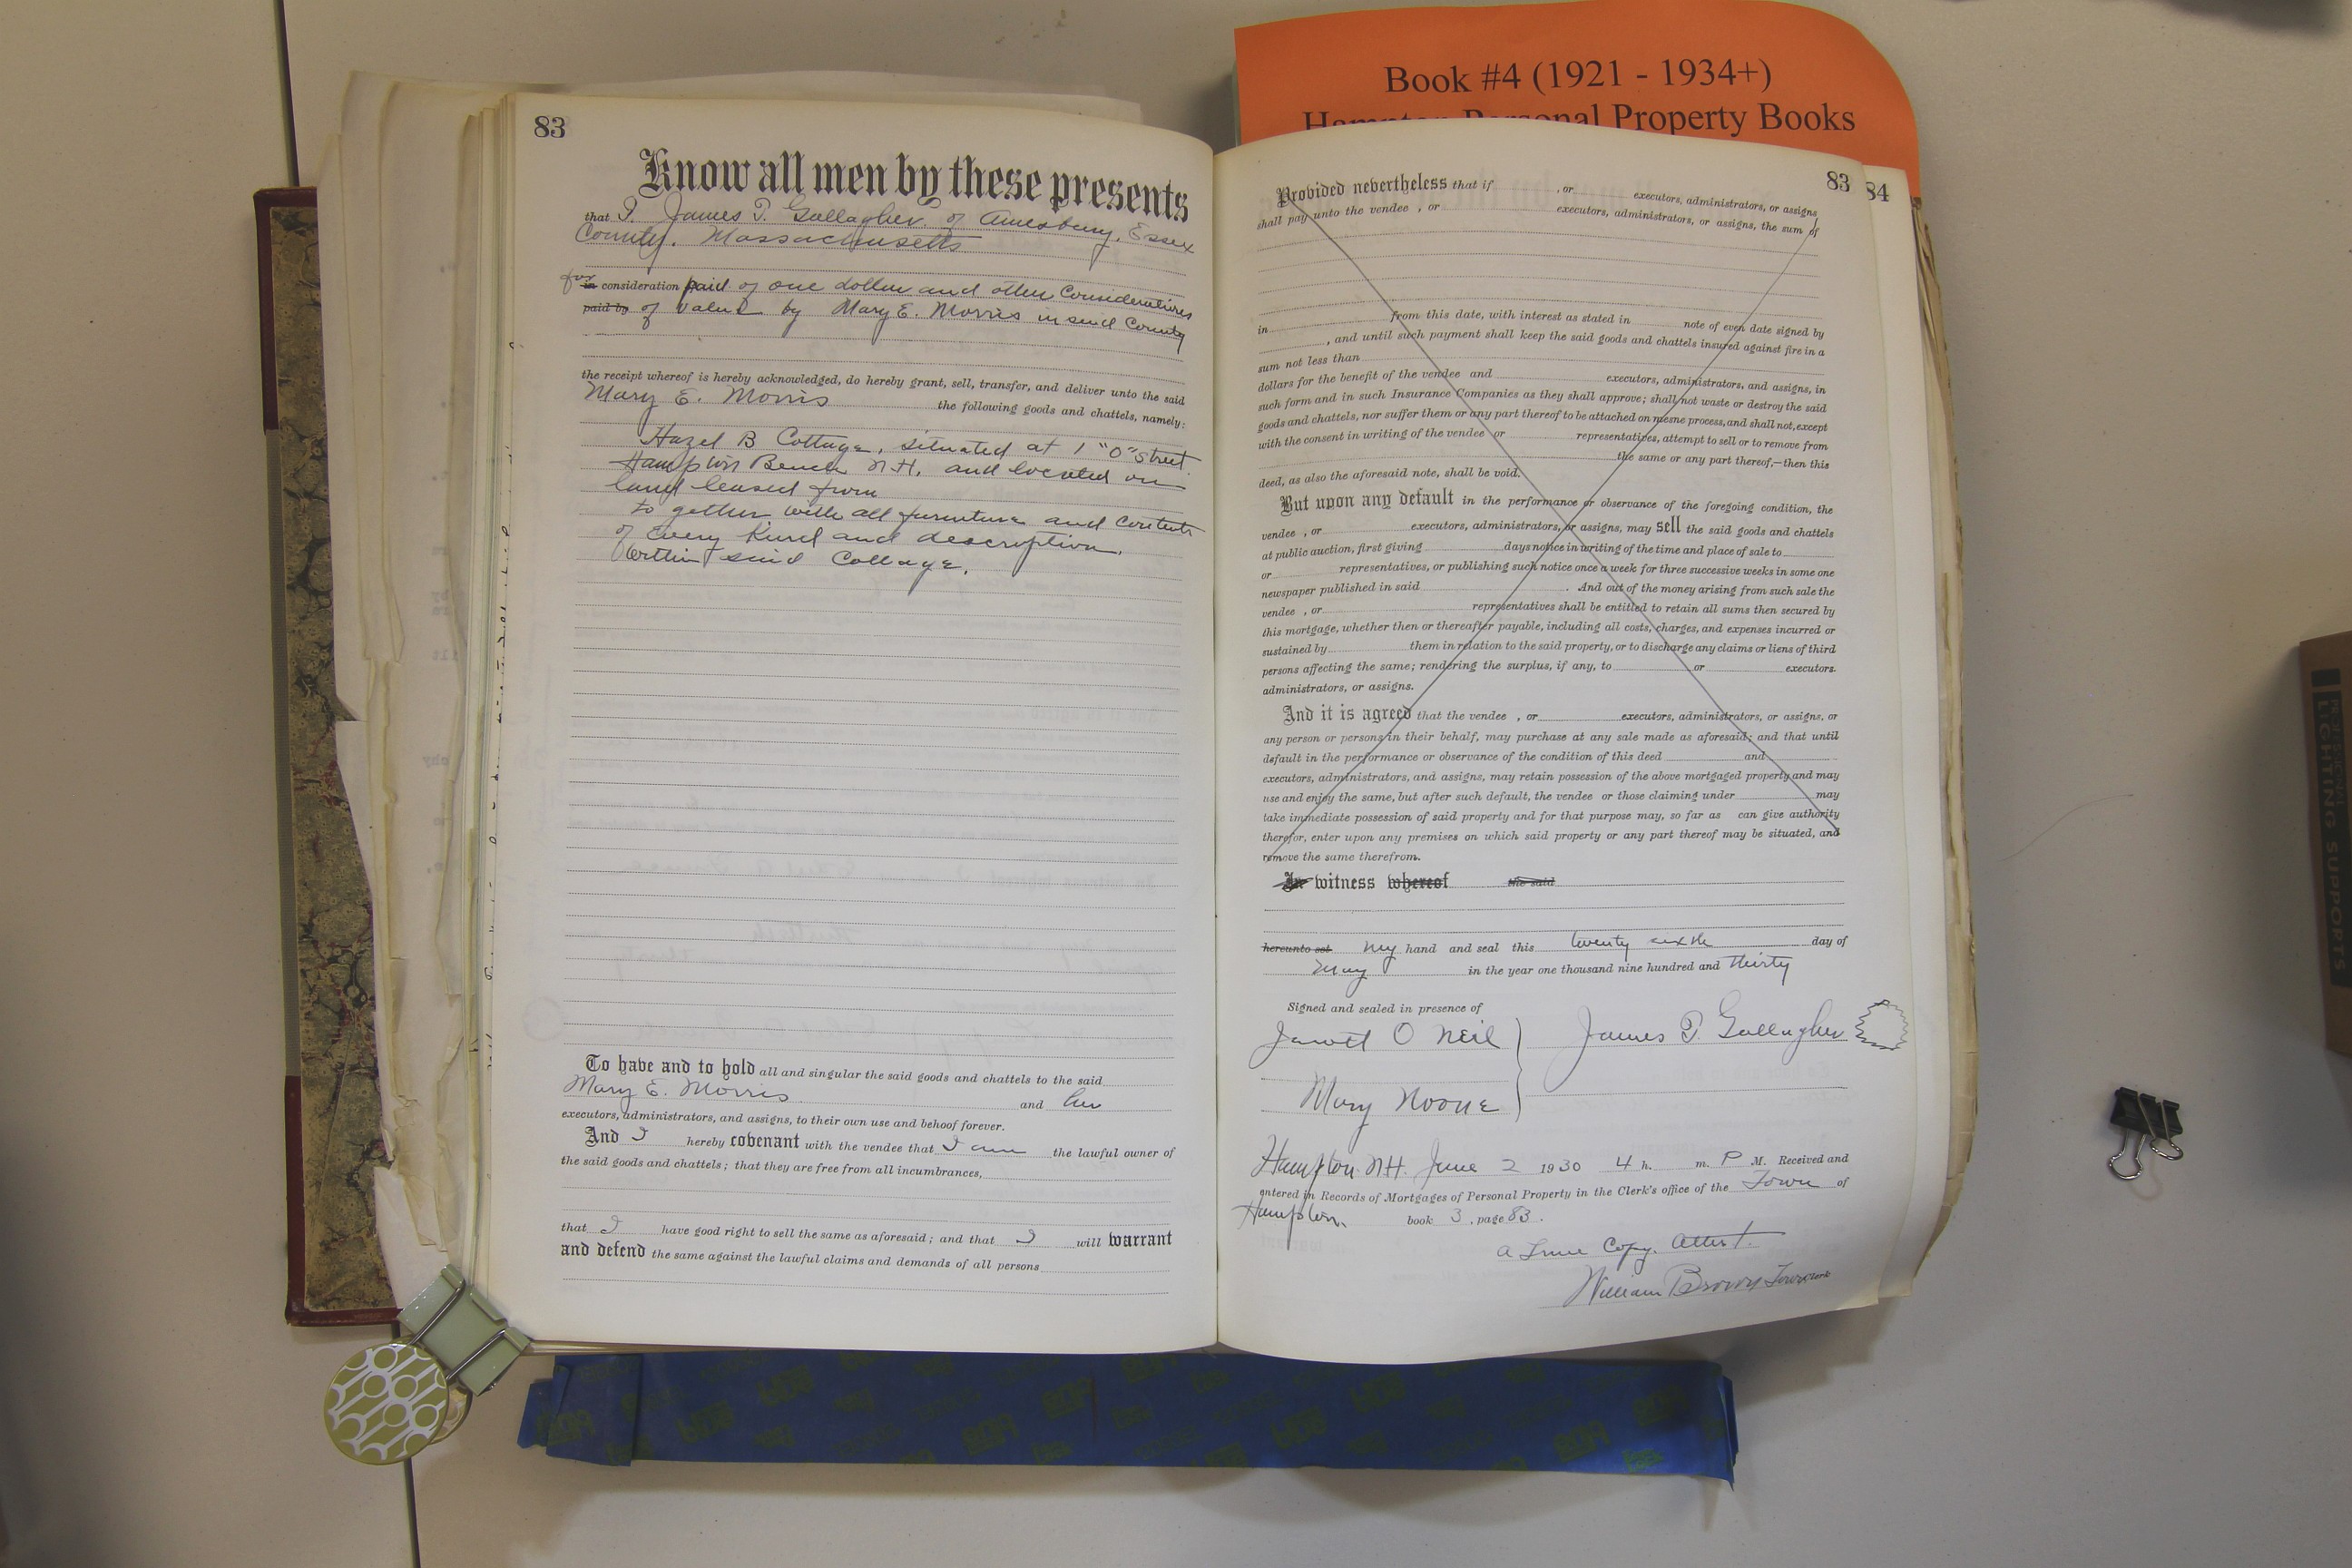 Book #4 (1921 - 1934+)
Hampton Personal Property Books
83
Know all men by these presents
that I, James T. Gallagher of Amesbury, Essex
County, Massachusetts
for
in consideration paid of one dollar and other considerations
paid by of value by Mary E. Morris in said County
the receipt whereof is hereby acknowledged, do hereby grant, sell, transfer, and deliver unto the said
Mary E. Morris the following goods and chattels, namely:
Hazel B Cottage, situated at 1 "O" Street
Hampton Beach N.H. and located on
land leased from
to gether with all furniture and contents
of every kind and description
within said Cottage.
To have and to hold all and singular the said goods and chattels to the said
Mary E. Morris and her
executors, administrators, and assigns, to their own use and behoof forever.
And I hereby covenant with the vendee that I am the lawful owner of
the said goods and chattels; that they are free from all incumbrances,
that I have good right to sell the same as aforesaid; and that I will warrant
and defend the same against the lawful claims and demands of all persons
83
84
Provided nevertheless that if , or executors, administrators, or assigns
shall pay unto the vendee , or executors, administrators, or assigns, the sum of
in from this date, with interest as stated in note of even date signed by
, and until such payment shall keep the said goods and chattels insured against fire in a
sum not less than
dollars for the benefit of the vendee and executors, administrators, and assigns, in
such form and in such Insurance Companies as they shall approve; shall not waste or destroy the said
goods and chattels, nor suffer them or any part thereof to be attached on mesne process, and shall not, except
with the consent in writing of the vendee or representatives, attempt to sell or to remove from
the same or any part thereof,—then this
deed, as also the aforesaid note, shall be void.
But upon any default in the performance or observance of the foregoing condition, the
vendee , or executors, administrators, or assigns, may sell the said goods and chattels
at public auction, first giving days notice in writing of the time and place of sale to
or representatives, or publishing such notice once a week for three successive weeks in some one
newspaper published in said . And out of the money arising from such sale the
vendee , or representatives shall be entitled to retain all sums then secured by
this mortgage, whether then or thereafter payable, including all costs, charges, and expenses incurred or
sustained by them in relation to the said property, or to discharge any claims or liens of third
persons affecting the same; rendering the surplus, if any, to or executors.
administrators, or assigns.
And it is agreed that the vendee , or executors, administrators, or assigns, or
any person or persons in their behalf, may purchase at any sale made as aforesaid; and that until
default in the performance or observance of the condition of this deed and
executors, administrators, and assigns, may retain possession of the above mortgaged property and may
use and enjoy the same, but after such default, the vendee or those claiming under may
take immediate possession of said property and for that purpose may, so far as can give authority
therefor, enter upon any premises on which said property or any part thereof may be situated, and
remove the same therefrom.
In witness whereof the said
hereunto set my hand and seal this twenty sixth day of
May in the year one thousand nine hundred and thirty
Signed and sealed in presence of
O'Neil James T. Gallagher
Mary Noone
Hampton N.H. June 2 1930 4 h. m. P M. Received and
entered in Records of Mortgages of Personal Property in the Clerk's office of the Town of
Hampton. book 3, page 83.
A True Copy. Attest.
William Brown Town Clerk
PERSONAL
LIGHTING SUPPORTS